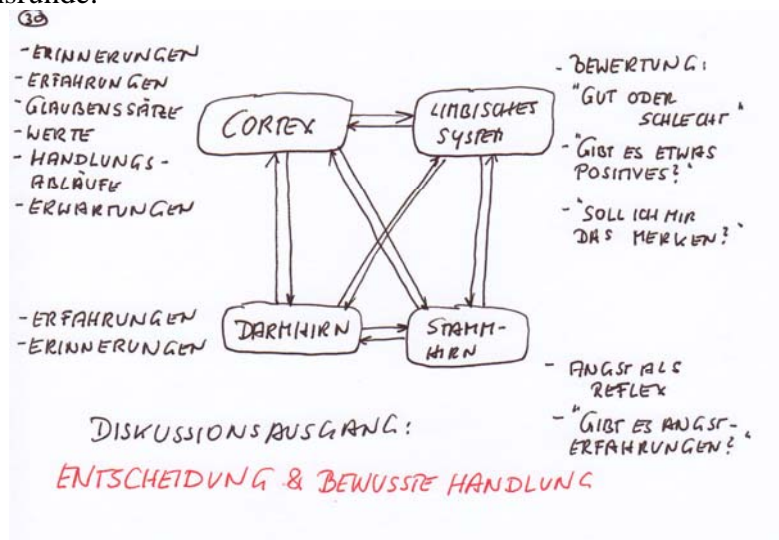 nsrunde.
30
- ERINNERUNGEN
- ERFAHRUNGEN
- GLAUBENSSÄTZE
- WERTE
- HANDLUNGS-
ABLÄUFE
- ERWARTUNGEN
CORTEX
LIMBISCHES
SYSTEM
- BEWERTUNG:
"GUT ODER
SCHLECHT"
- "GIBT ES ETWAS
POSITIVES?"
- "SOLL ICH MIR
DAS MERKEN?"
- ERFAHRUNGEN
- ERINNERUNGEN
DARMHIRN
STAMM-
HIRN
- ANGST ALS
REFLEX
- "GIBT ES ANGST-
ERFAHRUNGEN?"
DISKUSSIONSAUSGANG:
ENTSCHEIDUNG & BEWUSSTE HANDLUNG